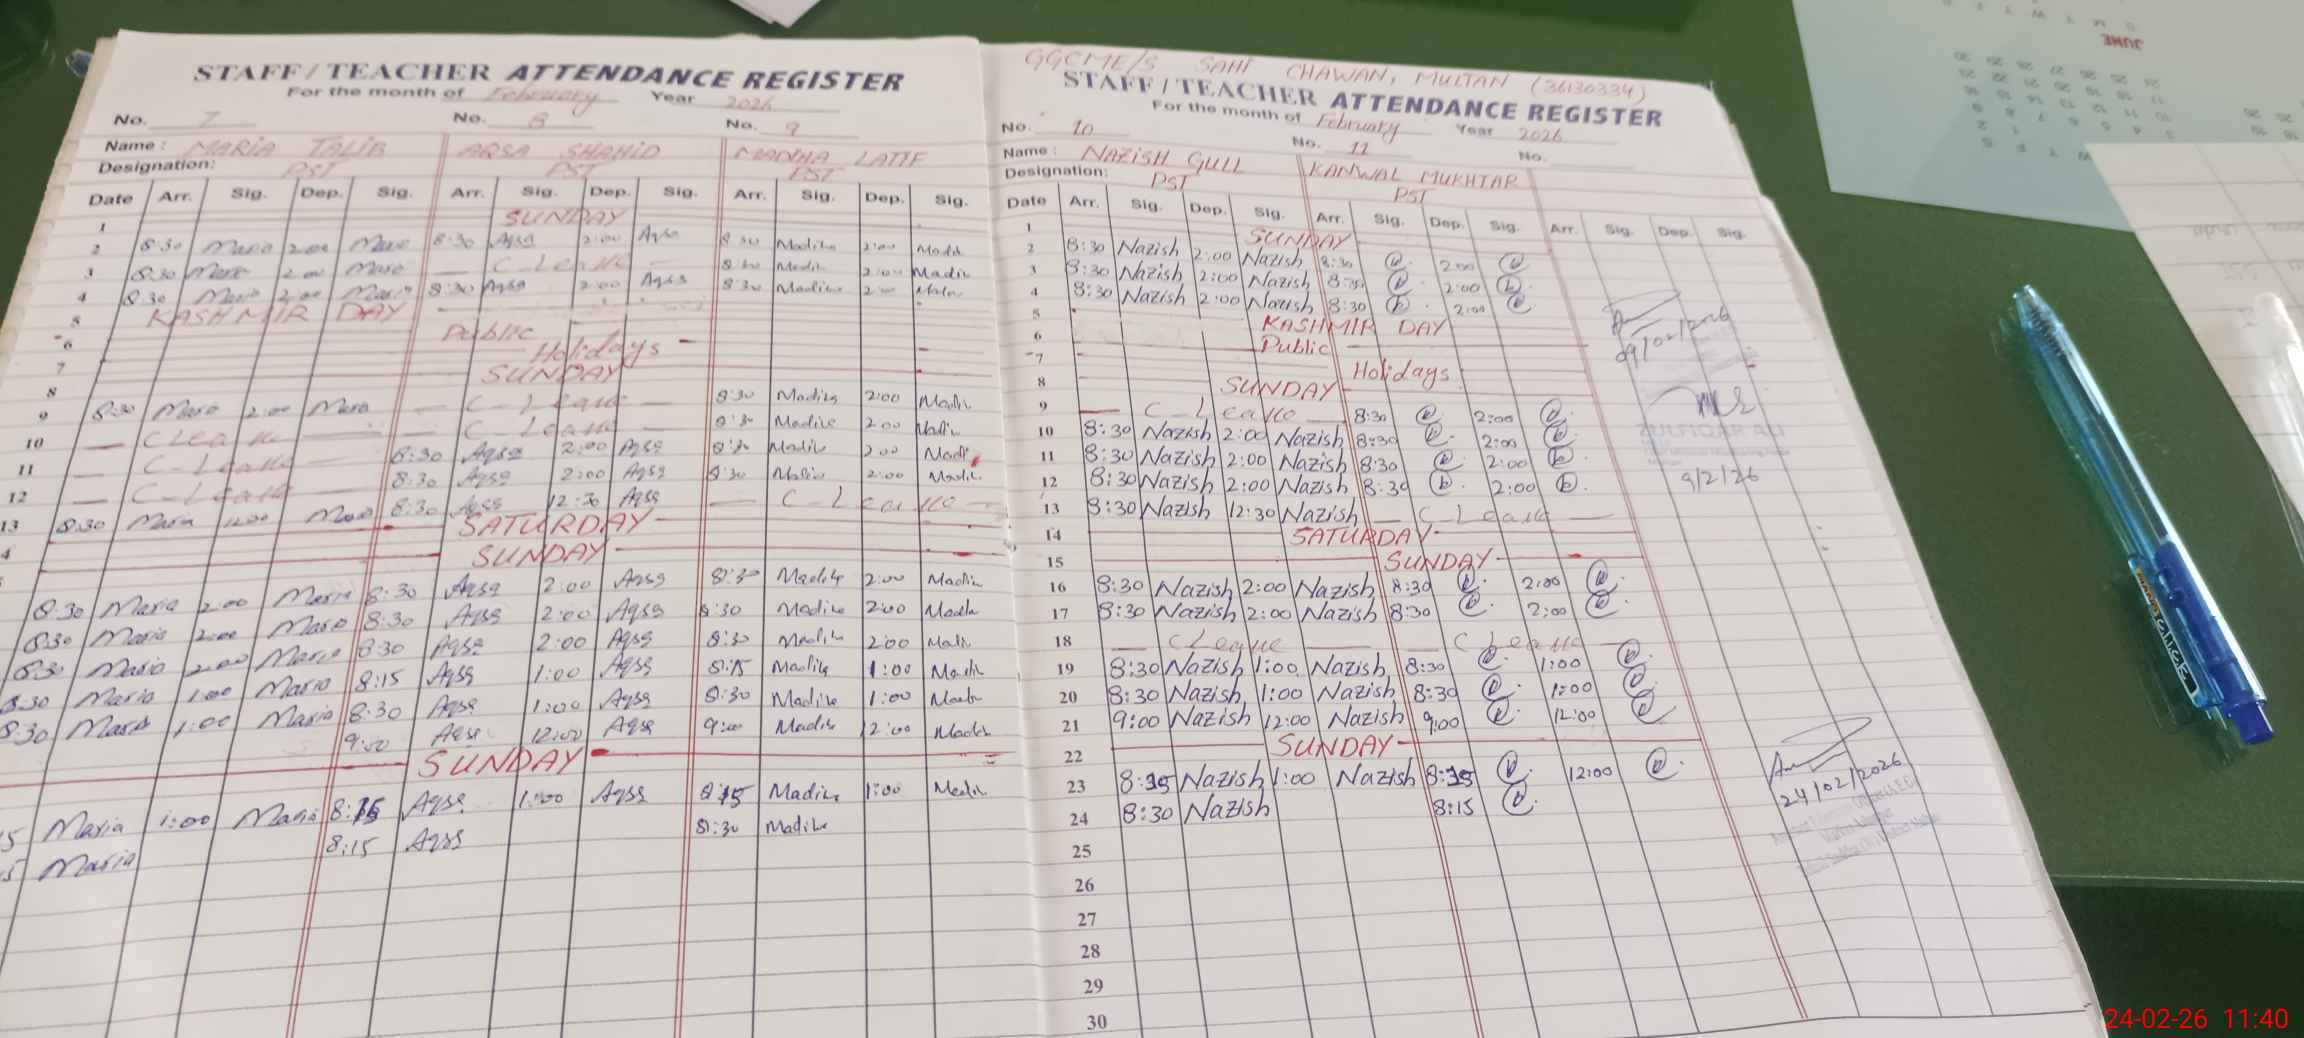 STAFF / TEACHER ATTENDANCE REGISTER
For the month of February Year 2026
No. 7 No. 8 No. 9
Name: MARIA TALIB AQSA SHAHID MADIHA LATIF
Designation: PST PST PST
Date Arr. Sig. Dep. Sig. Arr. Sig. Dep. Sig. Arr. Sig. Dep. Sig.
1 SUNDAY
2 8:30 Maria 2:00 Maria 8:30 Aqsa 2:00 Aqsa 8:30 Madiha 2:00 Madih
3 8:30 Maria 2:00 Maria C_Leave 8:30 Madih 2:00 Madih
4 8:30 Maria 2:00 Maria 8:30 Aqsa 2:00 Aqsa 8:30 Madiha 2:00
5 KASHMIR DAY
6 Public
7 Holidays
8 SUNDAY
9 8:30 Maria 2:00 Maria C_Leave 8:30 Madiha 2:00 Madih
10 C Leave C_Leave 8:30 Madiha 2:00 Madih
11 C_Leave 8:30 Aqsa 2:00 Aqsa 8:30 Madih 2:00 Madi
12 C_Leave 8:30 Aqsa 2:00 Aqsa 8:30 Madih 2:00 Madih
13 8:30 Maria 12:30 Maria 8:30 Aqsa 12:30 Aqsa C_Leave
4 SATURDAY
SUNDAY
8:30 Maria 2:00 Maria 8:30 Aqsa 2:00 Aqsa 8:30 Madiha 2:00 Madih
8:30 Maria 2:00 Maria 8:30 Aqsa 2:00 Aqsa 8:30 Madiha 2:00 Madih
8:30 Maria 2:00 Maria 8:30 Aqsa 2:00 Aqsa 8:30 Madih 2:00 Madih
8:30 Maria 1:00 Maria 8:15 Aqsa 1:00 Aqsa 8:15 Madiha 1:00 Madih
8:30 Maria 1:00 Maria 8:30 Aqsa 1:00 Aqsa 8:30 Madiha 1:00 Madih
9:00 Aqsa 12:00 Aqsa 9:00 Madih 12:00 Madih
SUNDAY
5 Maria 1:00 Maria 8:15 Aqsa 1:00 Aqsa 8:15 Madiha 1:00 Madih
5 Maria 8:15 Aqsa 8:30 Madiha
GGCME/S SAHI CHAWAN, MULTAN (36130334)
STAFF / TEACHER ATTENDANCE REGISTER
For the month of February Year 2026
No. 10 No. 11 No.
Name: NAZISH GULL KANWAL MUKHTAR
Designation: PST PST
Date Arr. Sig. Dep. Sig. Arr. Sig. Dep. Sig. Arr. Sig. Dep. Sig.
1 SUNDAY
2 8:30 Nazish 2:00 Nazish 8:30 2:00
3 8:30 Nazish 2:00 Nazish 8:30 2:00
4 8:30 Nazish 2:00 Nazish 8:30 2:00
5 KASHMIR DAY
6 Public
7 Holidays
8 SUNDAY
9 C_Leave 8:30 2:00
10 8:30 Nazish 2:00 Nazish 8:30 2:00
11 8:30 Nazish 2:00 Nazish 8:30 2:00
12 8:30 Nazish 2:00 Nazish 8:30 2:00
13 8:30 Nazish 12:30 Nazish C_Leave
14 SATURDAY
15 SUNDAY
16 8:30 Nazish 2:00 Nazish 8:30 2:00
17 8:30 Nazish 2:00 Nazish 8:30 2:00
18 C Leave C Leave
19 8:30 Nazish 1:00 Nazish 8:30 1:00
20 8:30 Nazish 1:00 Nazish 8:30 1:00
21 9:00 Nazish 12:00 Nazish 9:00 12:00
22 SUNDAY
23 8:15 Nazish 1:00 Nazish 8:15 12:00
24 8:30 Nazish 8:15
25
26
27
28
29
30
09/02/2026
ZULFIQAR ALI
9/2/26
24/02/2026
JUNE
24-02-26 11:40